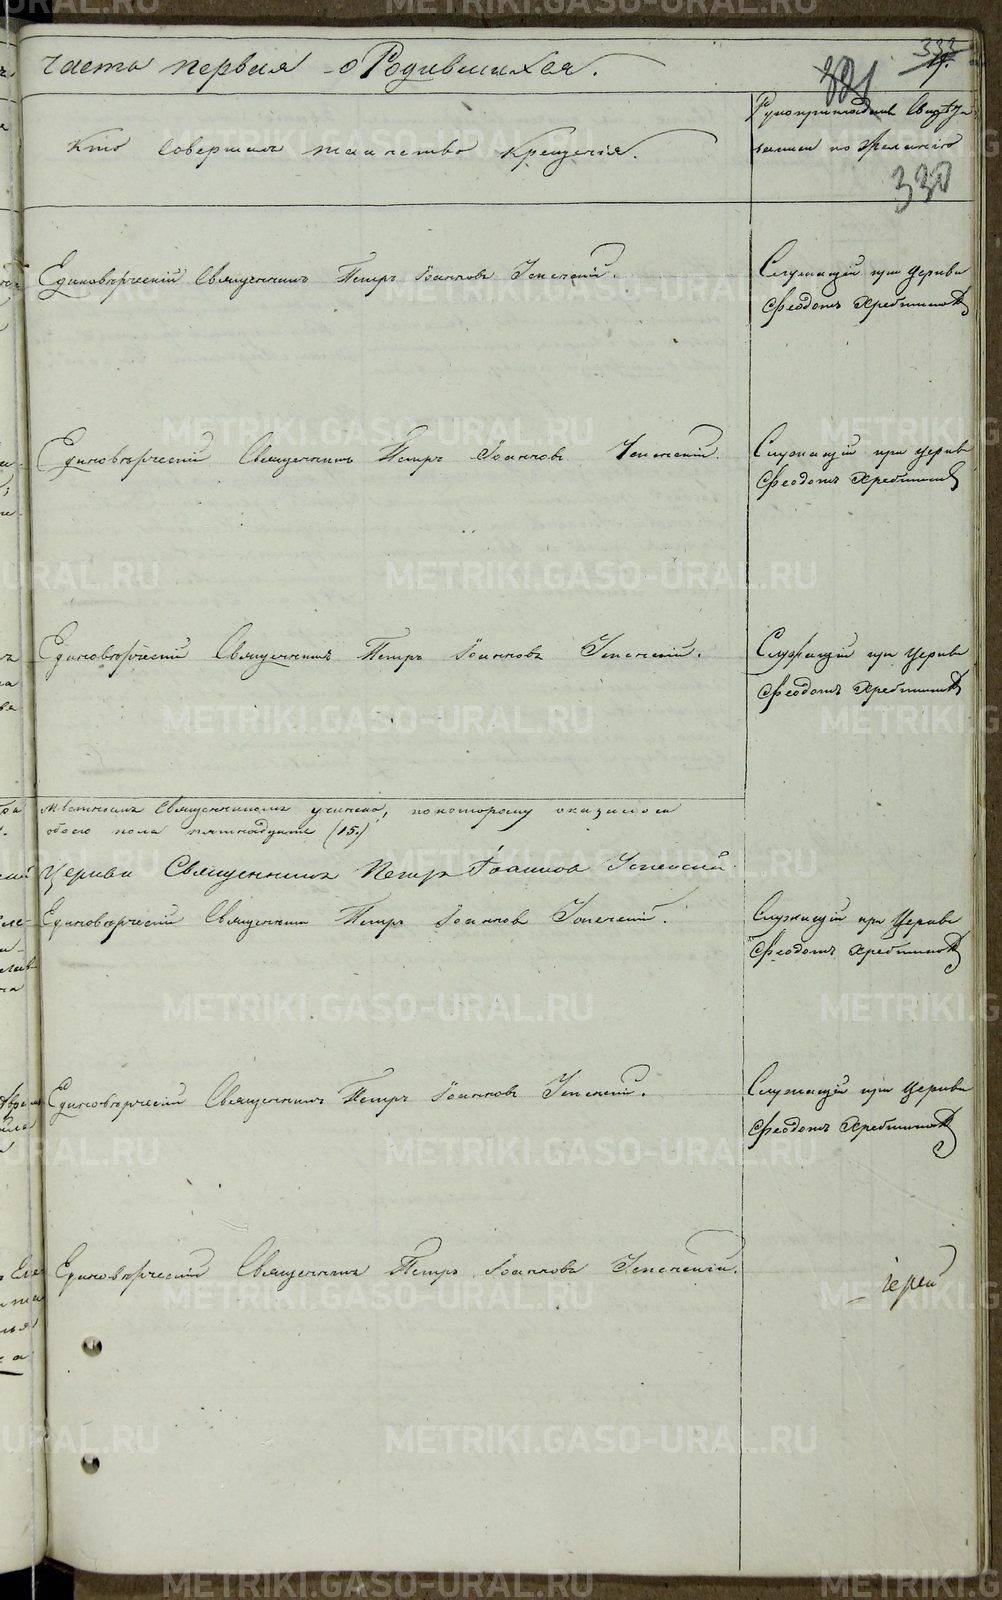 333
часть первая о Родившихся.
321
Кто Совершалъ таинство Крещенія.
Рукоприкладство Свидѣте
записи по желанію
330
Единовѣрческій Священникъ Петръ Іоанновъ Успенскій.
Служащій при Церкви
Феодотъ Хребтиковъ
Единовѣрческій Священникъ Петръ Іоанновъ Успенскій.
Служащій при Церкви
Феодотъ Хребтиковъ
Единовѣрческій Священникъ Петръ Іоанновъ Успенскій.
Служащій при Церкви
Феодотъ Хребтиковъ
мѣстнымъ Священникомъ учинена, по которому оказалось
обоего пола пятнадцать (15.)
Церкви Священникъ Петръ Іоанновъ Успенскій
Единовѣрческій Священникъ Петръ Іоанновъ Успенскій.
Служащій при Церкви
Феодотъ Хребтиковъ
Единовѣрческій Священникъ Петръ Іоанновъ Успенскій.
Служащій при Церкви
Феодотъ Хребтиковъ
Единовѣрческій Священникъ Петръ Іоанновъ Успенскій.
Іерей
METRIKI.GASO-URAL.RU